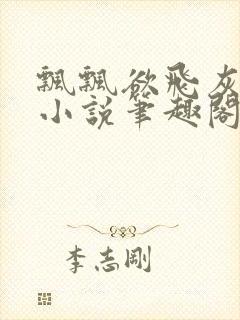 飄飄欲飛灰
小說筆趣閣
李志剛